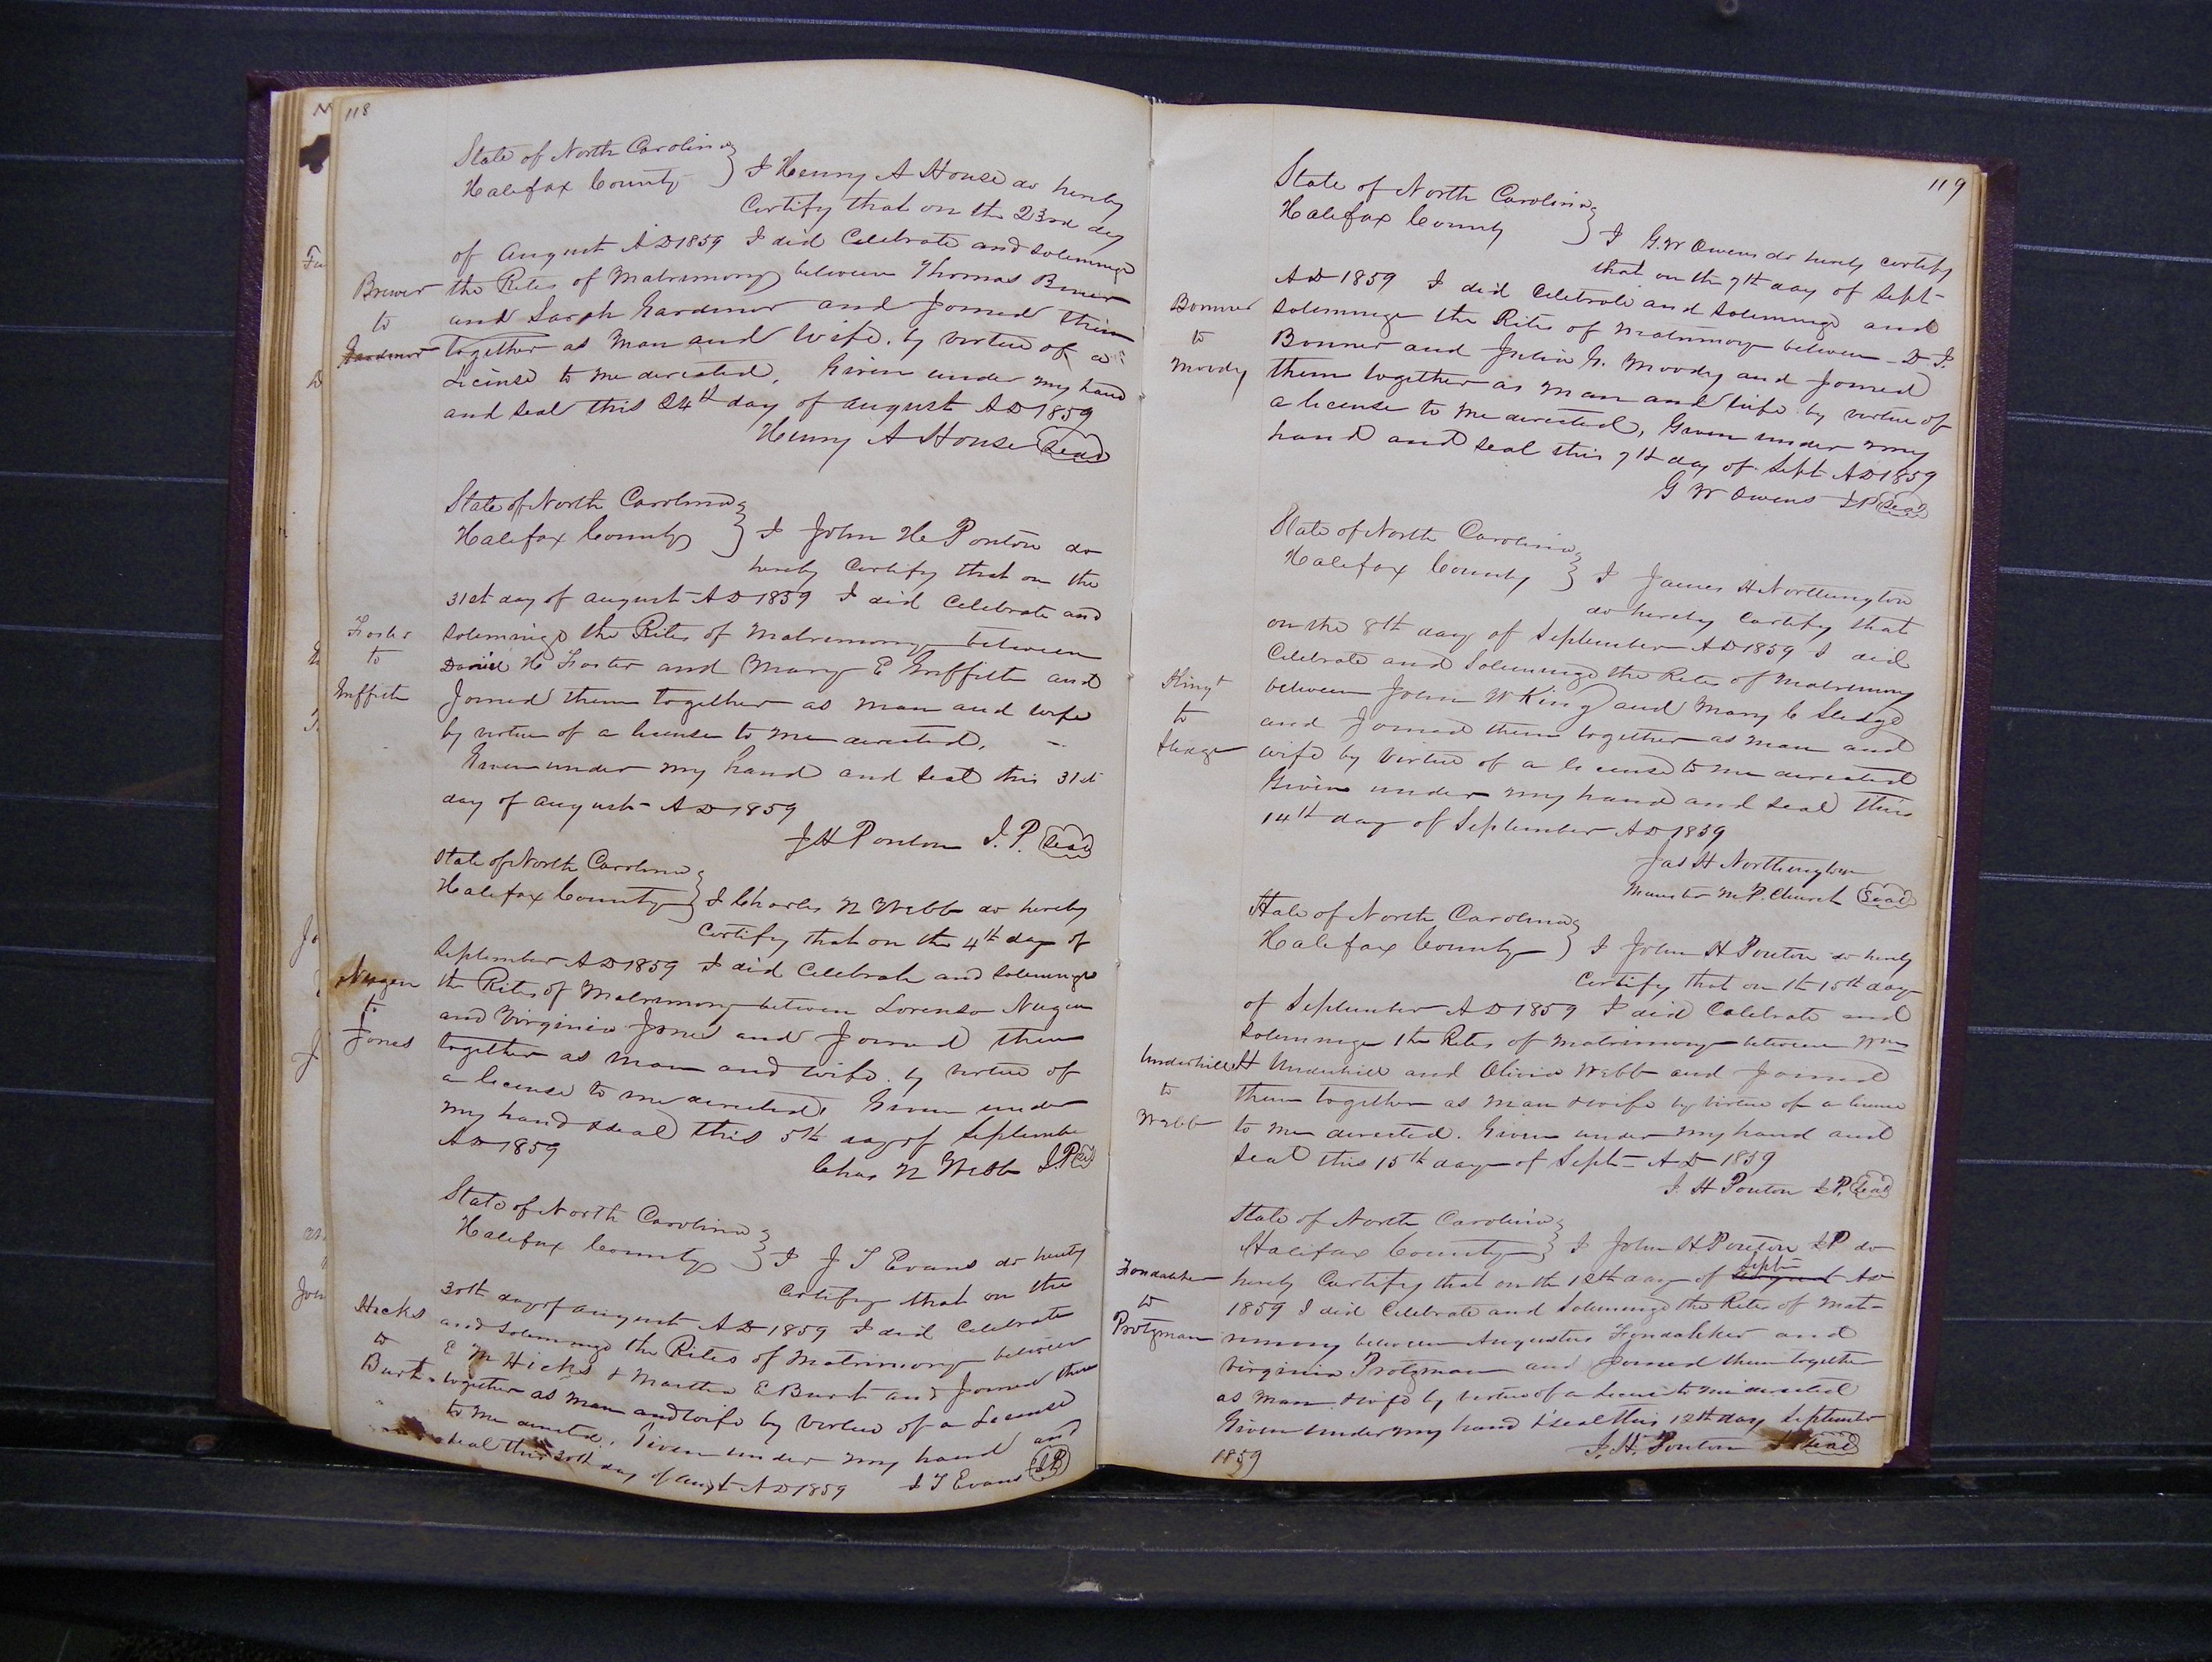 118
State of North Carolina
Halifax County } I Henry A House do hereby
Certify that on the 23rd day
of August AD 1859 I did Celebrate and solemnize
Brewer the Rites of Matrimony between Thomas Brewer
to and Sarah Gardner and Joined them
Gardner together as Man and Wife. by virtue of a
License to me directed. Given under my hand
and seal this 24th day of August AD 1859
Henry A House Seal
State of North Carolina
Halifax County } I John H Ponton do
hereby Certify that on the
31st day of August AD 1859 I did Celebrate and
Foster solemnize the Rites of Matrimony between
to Daniel H Foster and Mary E Griffith and
Griffith Joined them together as man and wife
by virtue of a license to me directed.
Given under my hand and seal this 31st
day of August AD 1859
J H Ponton J.P. Seal
State of North Carolina
Halifax County } I Charles N Webb do hereby
Certify that on the 4th day of
September AD 1859 I did Celebrate and solemnize
Nugen the Rites of Matrimony between Lorenso Nugen
to and Virginia Jones and Joined them
Jones together as man and wife. by virtue of
a license to me directed. Given under
my hand & seal this 5th day of September
AD 1859
Chas N Webb J.P.
State of North Carolina
Halifax County } I J T Evans do hereby
Certify that on the
30th day of August AD 1859 I did Celebrate
Hicks and solemnize the Rites of Matrimony between
to E M Hicks & Martha E Burt and Joined them
Burt together as man and wife by virtue of a License
to me directed. Given under my hand and
seal this 30th day of Augt AD 1859 J T Evans J.P.
119
State of North Carolina
Halifax County } I G.W Owens do hereby certify
that on the 7th day of Sept
AD 1859 I did Celebrate and solemnize and
Bonner solemnize the Rites of Matrimony between D I.
to Bonner and Julia G. Moody and Joined
Moody them together as man and wife by virtue of
a license to me directed, Given under my
hand and seal this 7th day of Sept AD 1859
G W Owens J.P. Seal
State of North Carolina
Halifax County } I James H Northington
do hereby Certify that
on the 8th day of September AD 1859 I did
Celebrate and Solemnize the Rites of Matrimony
King between John W King and Mary C Sledge
to and Joined them together as man and
Sledge wife by virtue of a license to me directed
Given under my hand and seal this
14th day of September AD 1859
Jas H Northington
Minister M.P. Church Seal
State of North Carolina
Halifax County } I John H Ponton do hereby
Certify that on th 15th day
of September AD 1859 I did Celebrate and
Solemnize the Rites of Matrimony between Wm
Underhill H Underhill and Olivia Webb and Joined
to them together as man & wife by virtue of a license
Webb to me directed. Given under my hand and
seal this 15th day of Sept AD 1859
J. H Ponton J.P. Seal
State of North Carolina
Halifax County } I John H. Ponton J.P do
Sept
Fondahker hereby Certify that on the 12th day of August AD
to 1859 I did Celebrate and Solemnize the Rites of Mat-
Protzman rimony between Augustus Fondahker and
Virginia Protzman and Joined them together
as man & wife by virtue of a License to me directed
Given under my hand & seal this 12th day September
1859 J. H. Ponton Seal